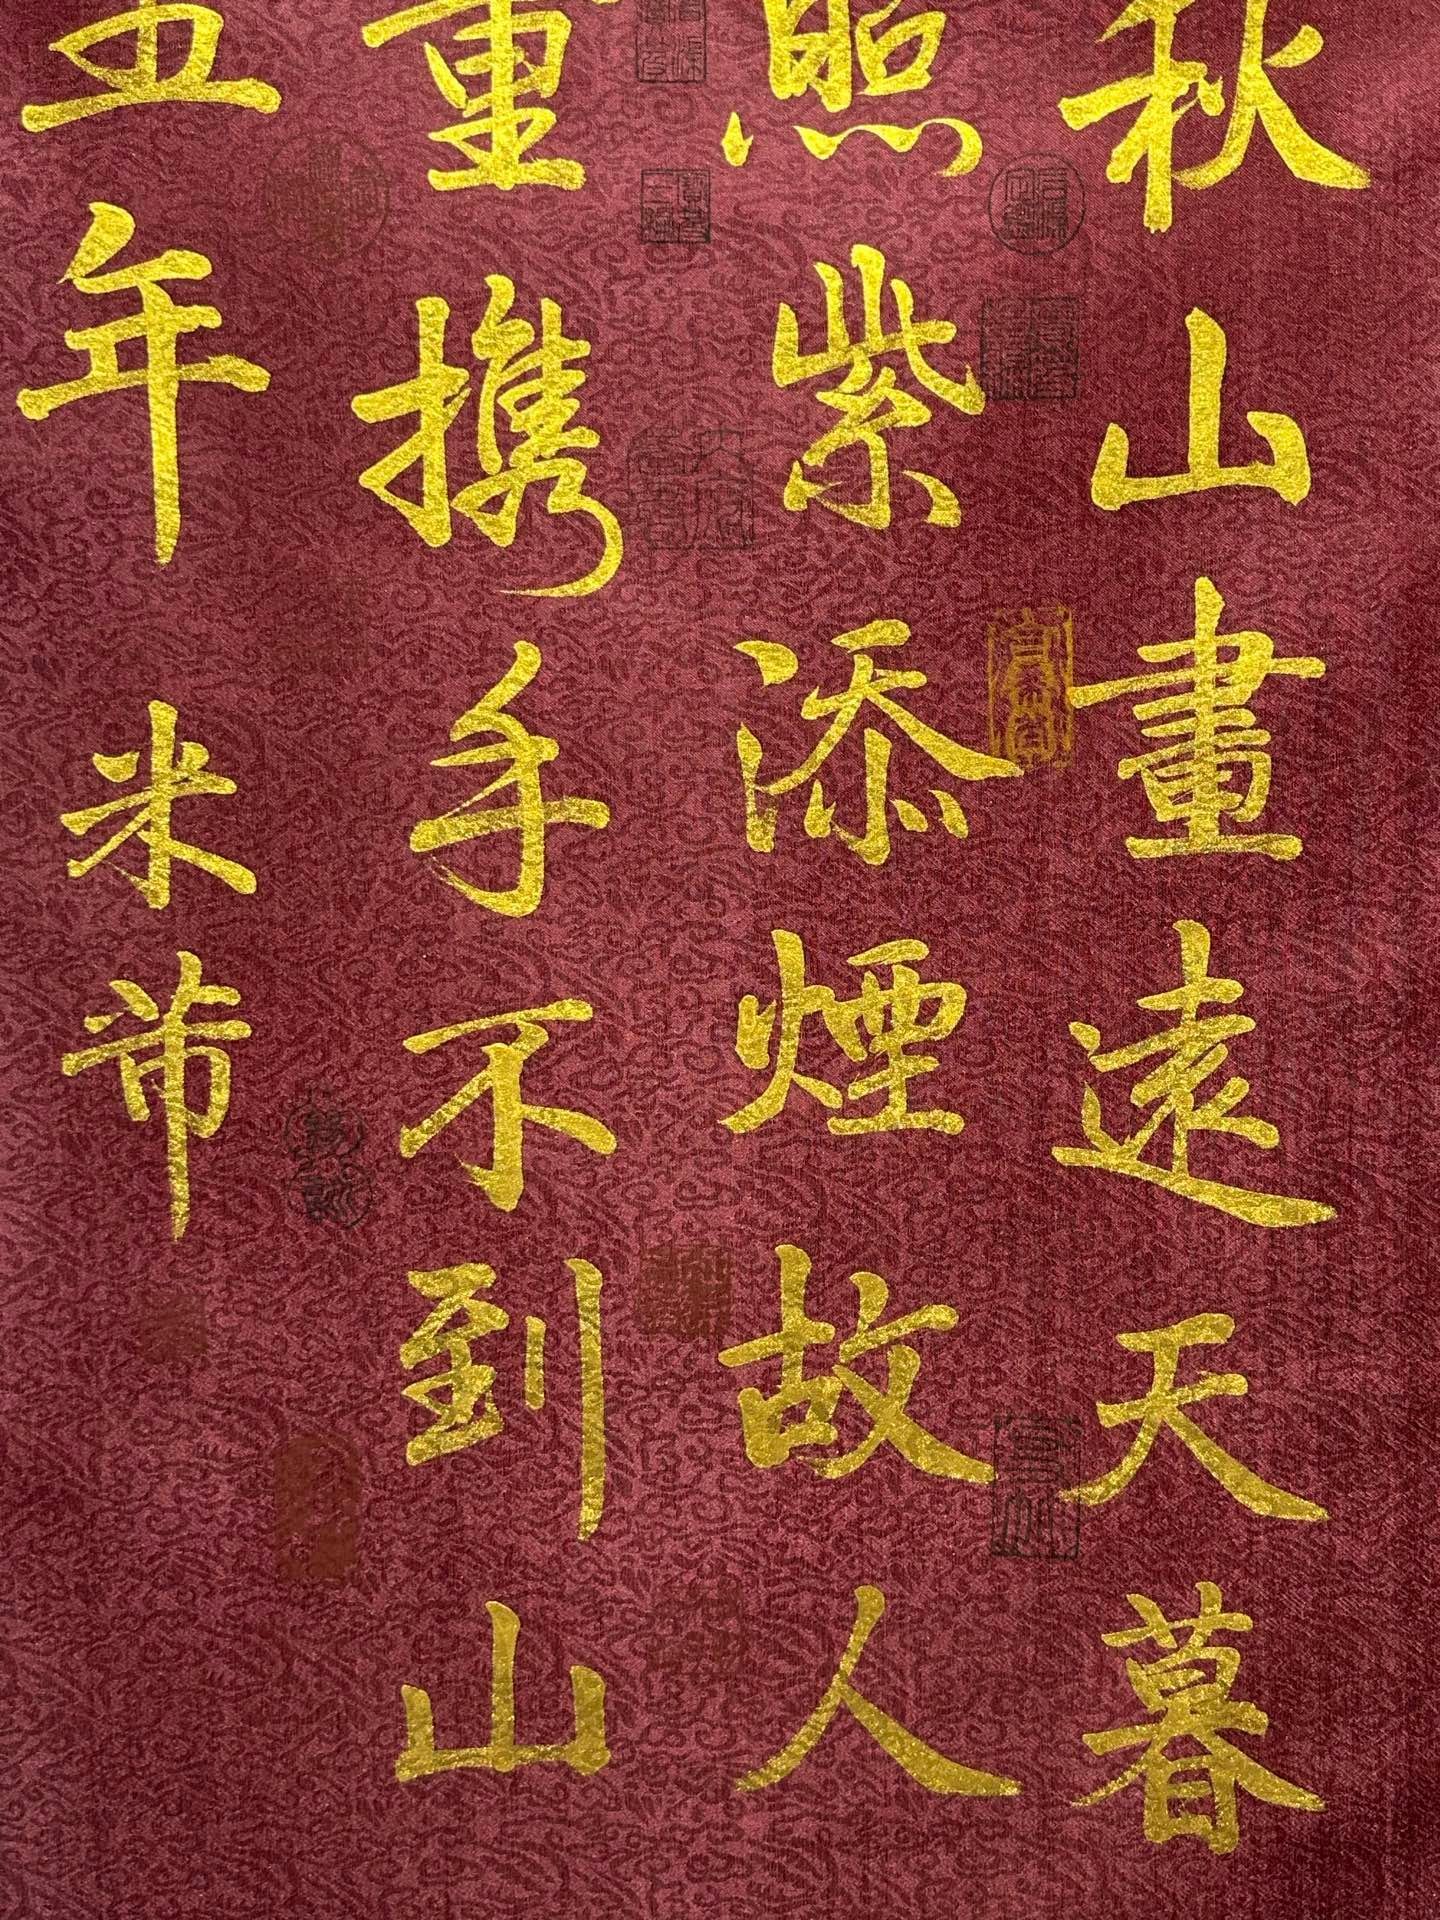 秋山畫遠天暮
照紫添煙故人
重攜手不到山
五年 米芾